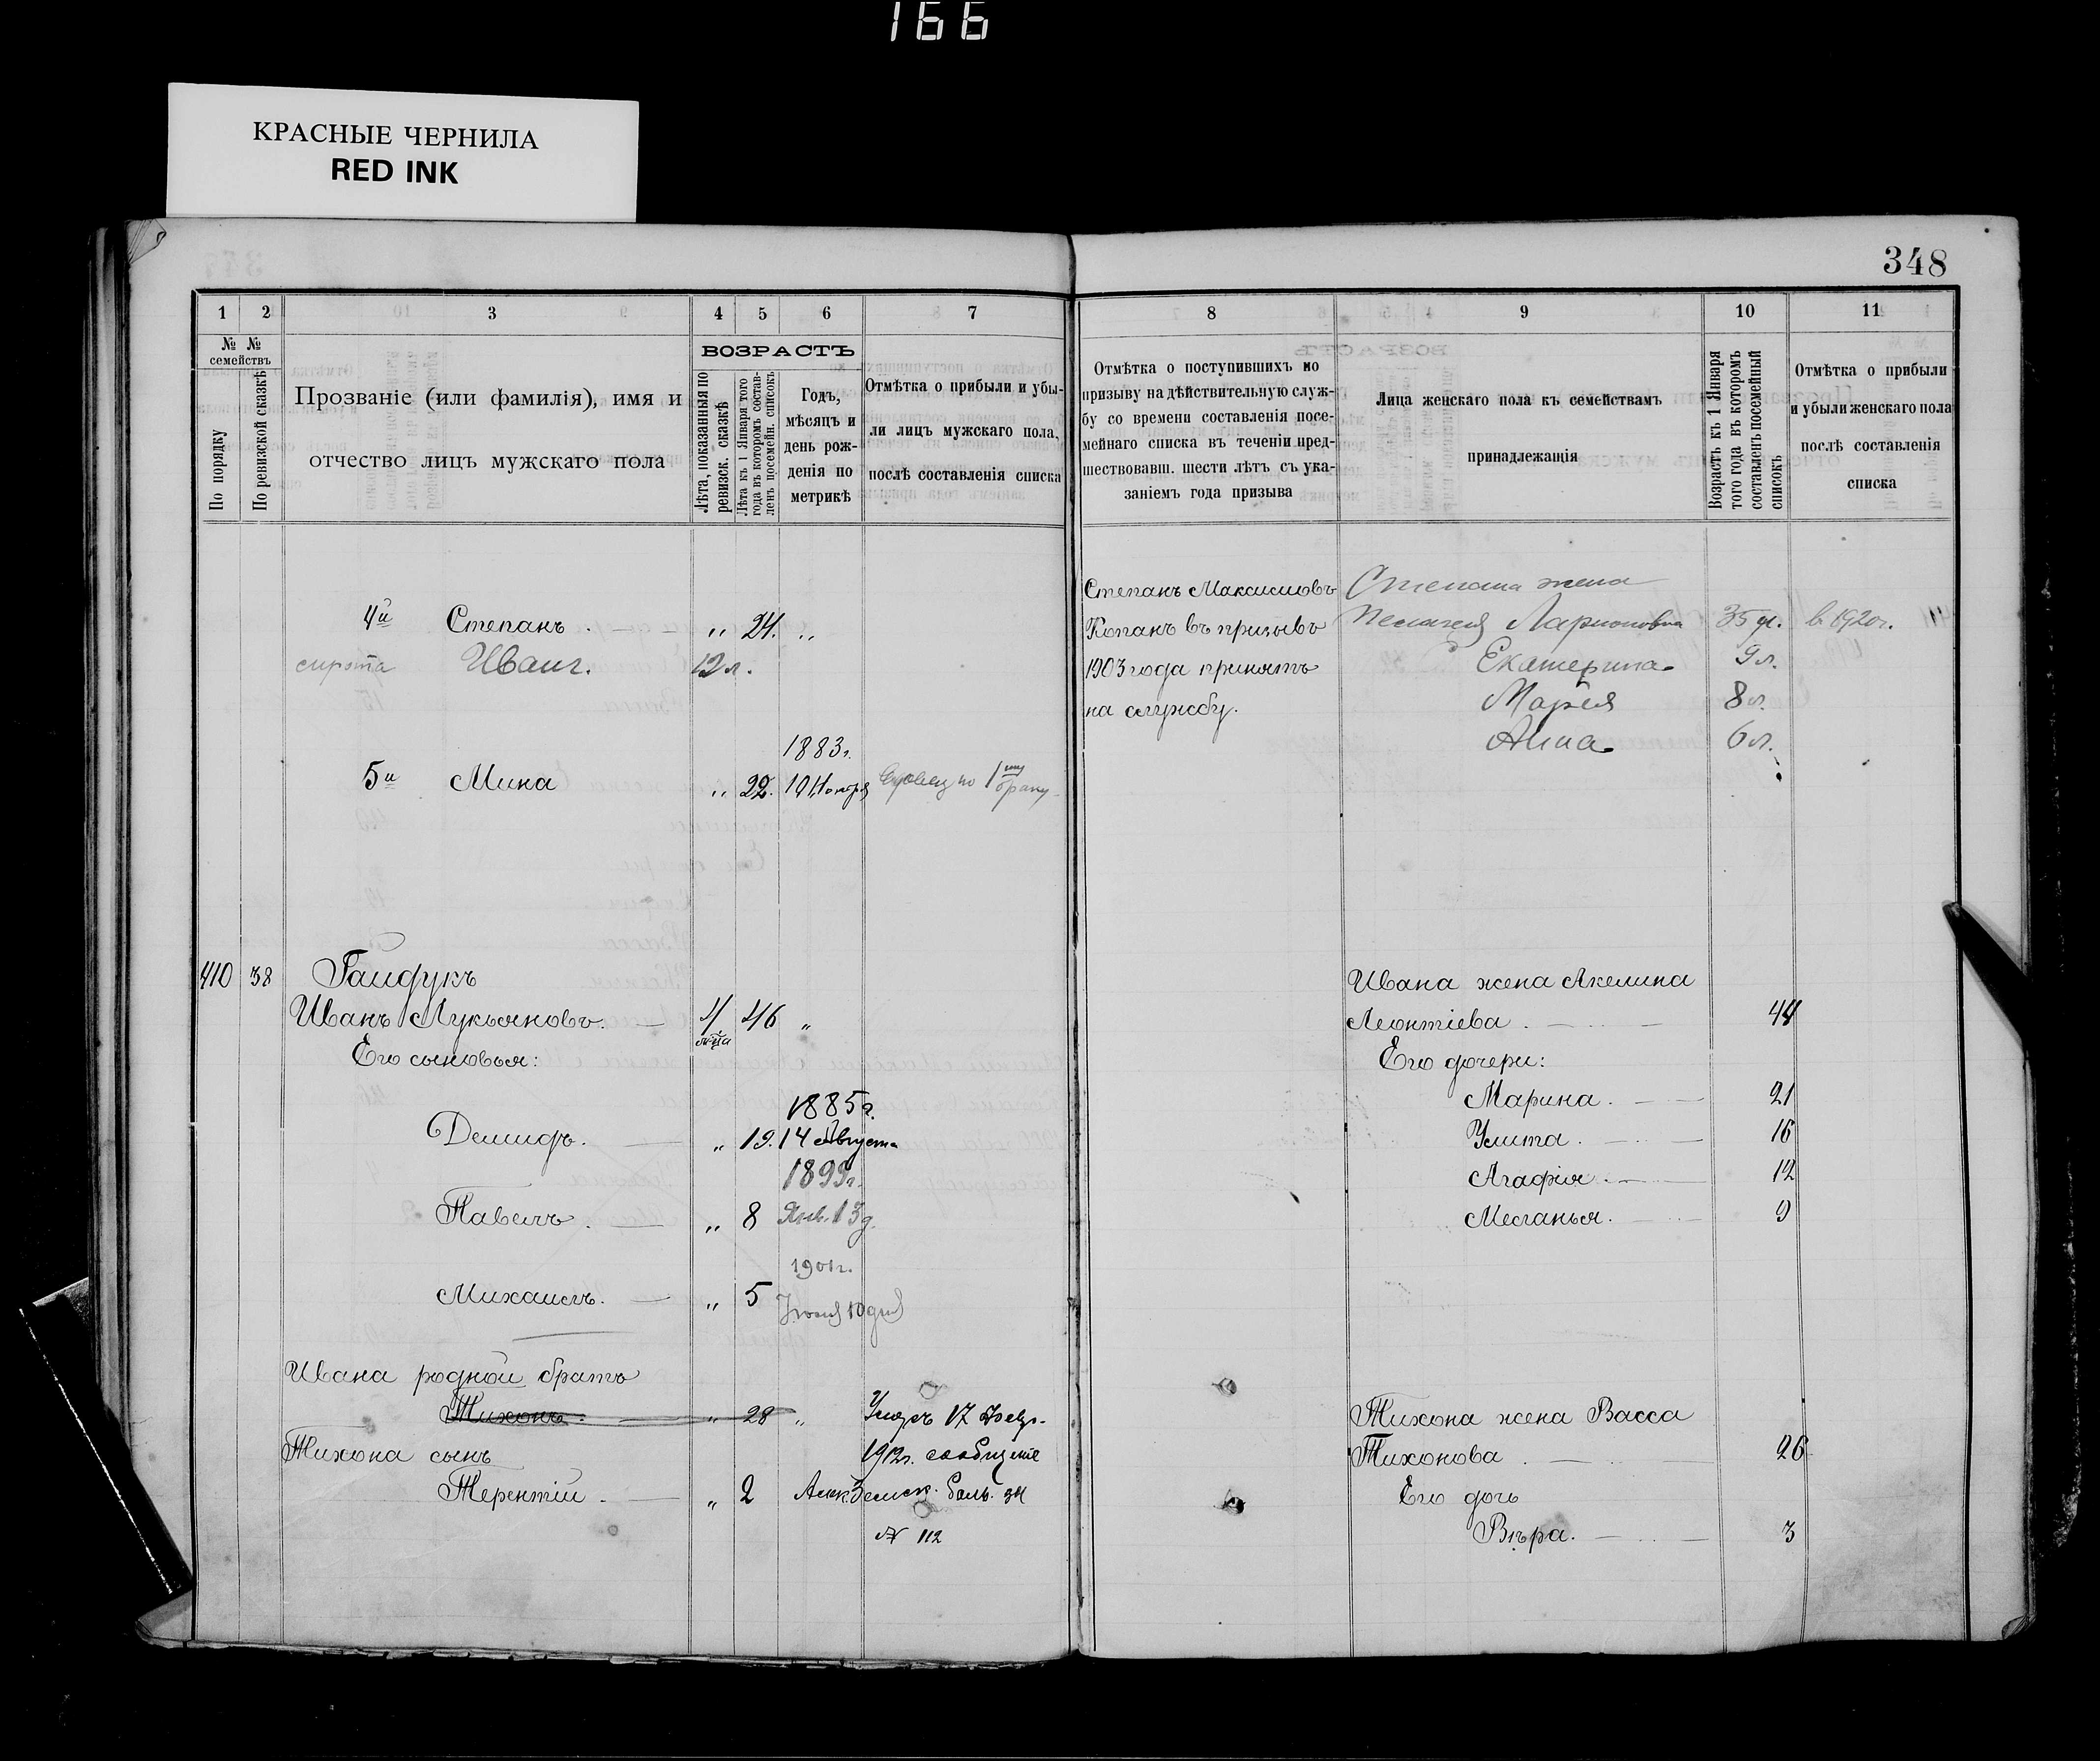 166
КРАСНЫЕ ЧЕРНИЛА
RED INK
348
1 2 3 4 5 6 7
№ № семействъ
По порядку
По ревизской сказкѣ
Прозваніе (или фамилія), имя и
отчество лицъ мужскаго пола
ВОЗРАСТЪ
Лѣта, показанныя по
ревизск. сказкѣ
Лѣта къ 1 Января того
года въ которомъ состав-
ленъ посемейн. списокъ
Годъ,
мѣсяцъ и
день рож-
денія по
метрикѣ
Отмѣтка о прибыли и убы-
ли лицъ мужскаго пола,
послѣ составленія списка
8 9 10 11
Отмѣтка о поступившихъ по
призыву на дѣйствительную служ-
бу со времени составленія посе-
мейнаго списка въ теченіи пред-
шествовавш. шести лѣтъ съ ука-
заніемъ года призыва
Лица женскаго пола къ семействамъ
принадлежащія
Возрастъ къ 1 Января
того года въ которомъ
составленъ посемейный
списокъ
Отмѣтка о прибыли
и убыли женскаго пола
послѣ составленія
списка
4й Степанъ . „ 24. „
сирота Иванъ. 12 л.
1883г.
5й Мина „ 22. 10 Ноября вдовец по 1му браку
410 38 Гайдукъ
Иванъ Лукьяновъ. 4/лѣта 46 „
Его сыновья:
1885г.
Демидъ. „ 19. 14 Августа
1899г.
Павелъ . „ 8 Янв. 13 д.
1901г.
Михаилъ. „ 5 Июня 10 дня
Ивана родной братъ
Тихонъ. „ 28 „ Умеръ 17 Февр.
Тихона сынъ 1912г. сообщеніе
Терентій . „ 2 Земск. Боль. за
№ 112
Степанъ Максимовъ
Копанъ въ призывъ
1903 года принятъ
на службу.
Степана жена
Пелагея Ларионовна 35 л. в 1920г.
Екатерина 9 л.
Мария 8 л.
Анна 6 л.
Ивана жена Акелина
Леонтіева . 44
Его дочери:
Марина. 21
Улита . 16
Агафія . 12
Меланья. 9
Тихона жена Васса
Тихонова . 26
Его дочь
Вѣра. 3